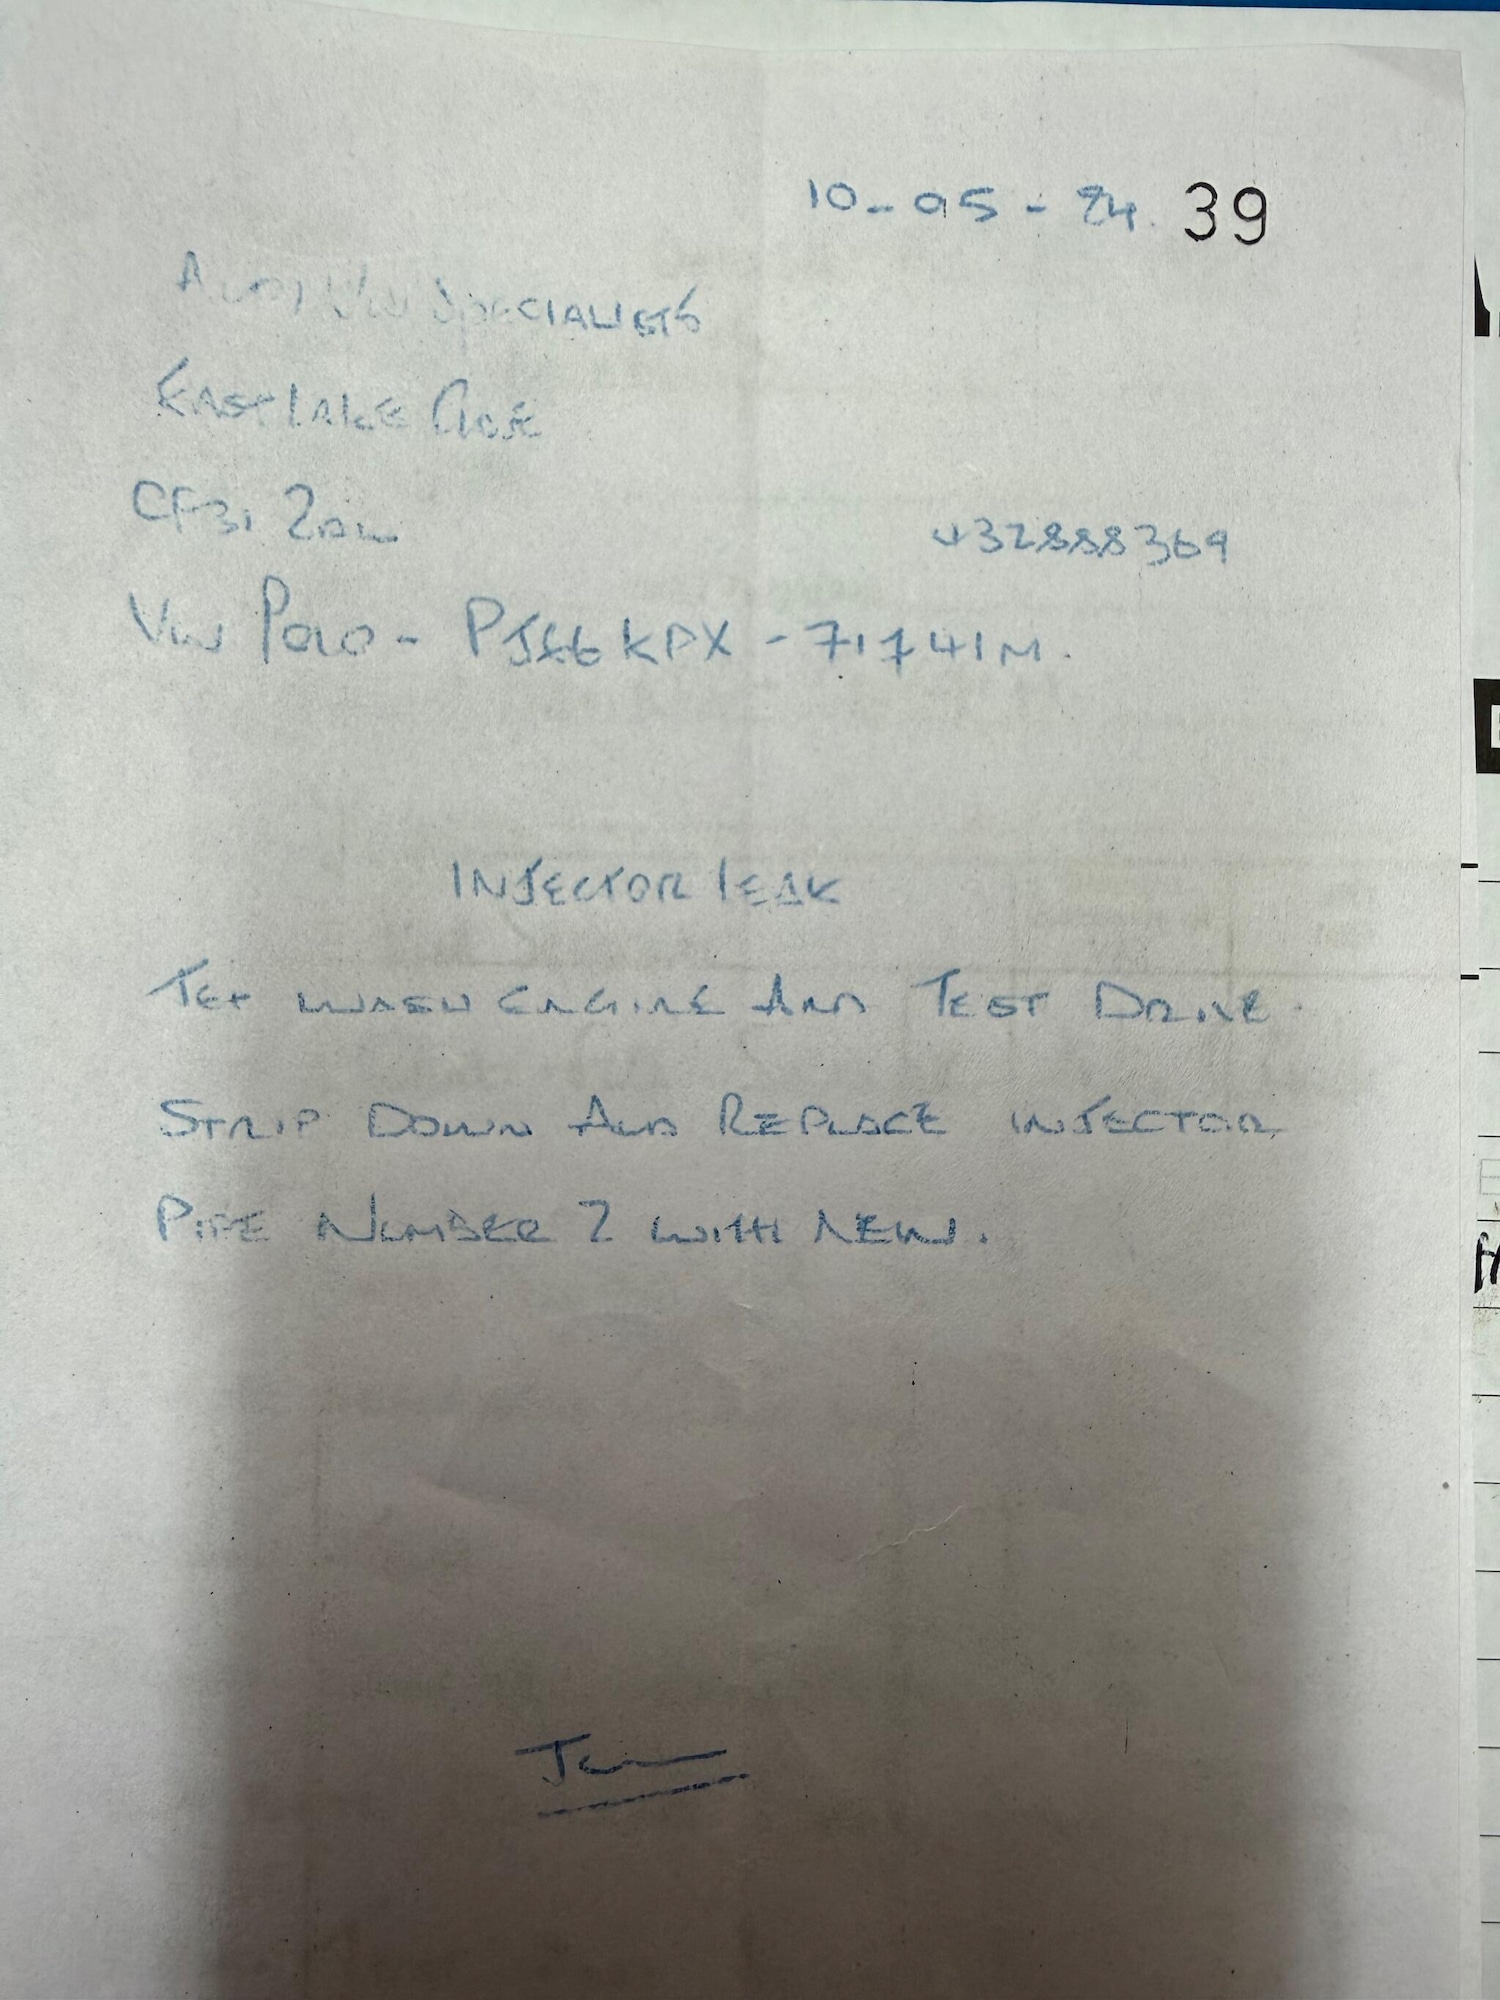 10-05-24. 39
AUDI VW SPECIALISTS
EASTLAKE CLOSE
CF31 2AL
432888369
VW POLO - PJ66 KPX - 71741M.
INJECTOR LEAK
JET WASH ENGINE AND TEST DRIVE.
STRIP DOWN AND REPLACE INJECTOR
PIPE NUMBER 2 WITH NEW.